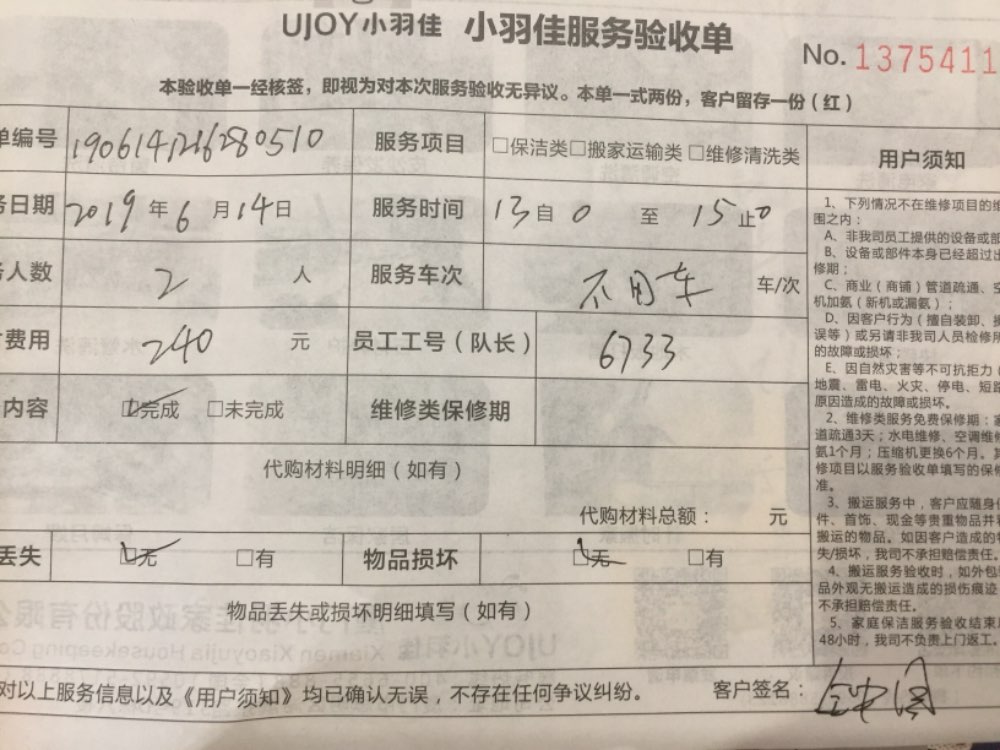 UJOY小羽佳 小羽佳服务验收单
No. 1375411
本验收单一经核签，即视为对本次服务验收无异议。本单一式两份，客户留存一份（红）
单编号 服务项目 □保洁类□搬家运输类 □维修清洗类 用户须知
务日期 2019 年 6 月 14 日 服务时间 13 自 0 至 15 止 0
务人数 2 人 服务车次 不用车 车/次
费用 240 元 员工工号（队长） 6733
内容 ☑完成 □未完成 维修类保修期
代购材料明细（如有）
代购材料总额： 元
丢失 ☑无 □有 物品损坏 ☑无 □有
物品丢失或损坏明细填写（如有）
对以上服务信息以及《用户须知》均已确认无误，不存在任何争议纠纷。 客户签名：
1、下列情况不在维修项目的维
围之内：
A、非我司员工提供的设备或部
B、设备或部件本身已经超过出
修期；
C、商业（商铺）管道疏通、空
机加氨（新机或漏氨）；
D、因客户行为（擅自装卸、损
误等）或另请非我司人员检修所
的故障或损坏；
E、因自然灾害等不可抗拒力（
地震、雷电、火灾、停电、短路
原因造成的故障或损坏。
2、维修类服务免费保修期：家
道疏通3天；水电维修、空调维修
氨1个月；压缩机更换6个月。其
修项目以服务验收单填写的保修
准。
3、搬运服务中，客户应随身
件、首饰、现金等贵重物品并
搬运的物品。如因客户造成的物
失/损坏，我司不承担赔偿责任。
4、搬运服务验收时，如外包
品外观无搬运造成的损伤痕迹
不承担赔偿责任。
5、家庭保洁服务验收结束
48小时，我司不负责上门返工。